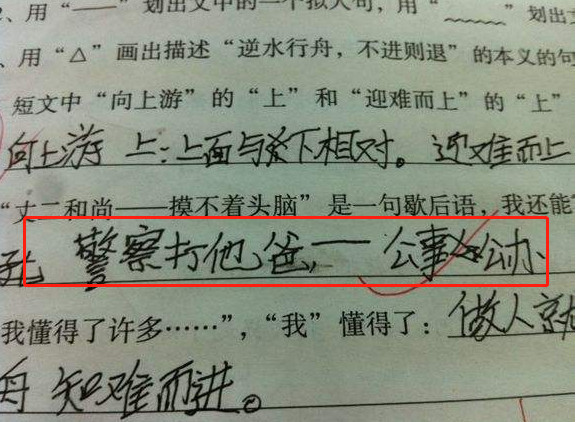 、用“——”划出文中的一个拟人句，用“﹏﹏﹏”划出文
、用“△”画出描述“逆水行舟，不进则退”的本义的句
短文中“向上游”的“上”和“迎难而上”的“上”
向上游 上：上面与下相对。迎难而上
“丈二和尚——摸不着头脑”是一句歇后语，我还能
警察打他爸，— 公事公办
我懂得了许多……”，“我”懂得了：做人京
舟 知难而进。